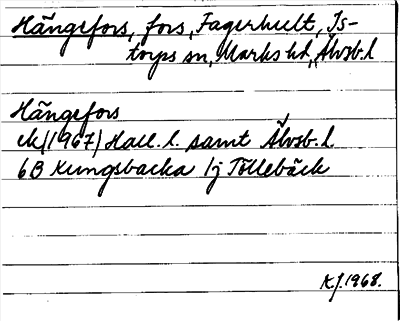 Hängefors, fors, Fagerhult, Is-
torps sn, Marks hd, Älvsb. l
Hängefors
ek/(1967) Hall. l. samt Älvsb. l.
6B Kungsbacka 1j Töllebäck
KJ. 1968.